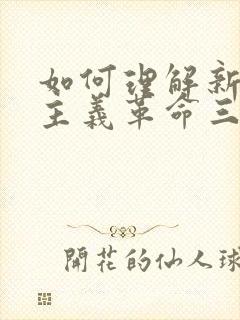 如何理解新
主義革命三
開花的仙人球